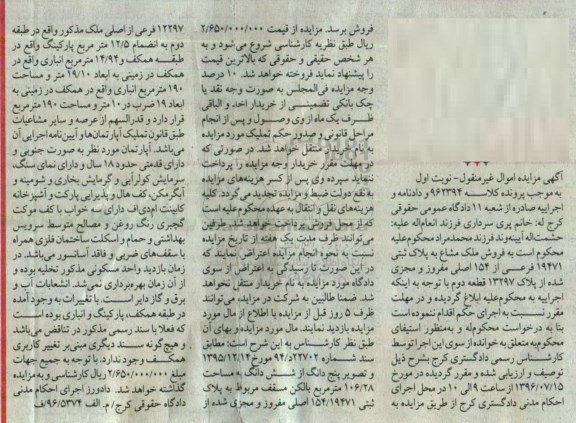 آگهی مزایده اموال غیرمنقول - نوبت اول
به موجب پرونده کلاسه ۹۶۲۳۹۴ و دادنامه و
اجراییه صادره از شعبه ۱۱ دادگاه عمومی حقوقی
کرج له: خانم پری سرداری فرزند انعام‌اله علیه:
حشمت‌اله آیینه‌وند فرزند محمدمراد محکوم‌علیه
محکوم است به فروش ملک مشاع به پلاک ثبتی
۱۹۴۷۱ فرعی از ۱۵۴ اصلی مفروز و مجزی
شده از پلاک ۱۳۲۹۷ قطعه دوم با توجه به اینکه
اجراییه به محکوم‌علیه ابلاغ گردیده و در مهلت
مقرر نسبت به اجرای حکم اقدام ننموده است
بنا به درخواست محکوم‌له و به‌منظور استیفای
محکوم‌به متعلق به خوانده از سوی این اجرا توسط
کارشناس رسمی دادگستری کرج بشرح ذیل
توصیف و ارزیابی شده و مقرر گردیده در مورخ
۱۳۹۶/۰۷/۱۵ از ساعت ۹ الی ۱۰ در محل اجرای
احکام مدنی دادگستری کرج از طریق مزایده به
فروش برسد. مزایده از قیمت ۲/۶۵۰/۰۰۰/۰۰۰
ریال طبق نظریه کارشناسی شروع می‌شود و به
هر شخص حقیقی و حقوقی که بالاترین قیمت
را پیشنهاد نماید فروخته خواهد شد. ۱۰ درصد
وجه مزایده فی‌المجلس به صورت وجه نقد یا
چک بانکی تضمینی از خریدار اخذ و الباقی
ظرف یک ماه از وی وصول و پس از انجام
مراحل قانونی و صدور حکم تملیک مورد مزایده
به نام خریدار منتقل خواهد شد. در صورتی که
در مهلت مقرر خریدار وجه مزایده را پرداخت
ننماید سپرده وی پس از کسر هزینه‌های مزایده
به نفع دولت ضبط و مزایده تجدید می‌گردد. کلیه
هزینه‌های نقل و انتقال به عهده محکوم‌علیه است
که از محل فروش پرداخت خواهد شد. طرفین
می‌توانند ظرف مدت یک هفته از تاریخ مزایده
نسبت به نحوه انجام مزایده اعتراض نمایند که
در این صورت تا رسیدگی به اعتراض از سوی
دادگاه مورد مزایده به نام خریدار منتقل نخواهد
شد. ضمنا طالبین به شرکت در مزایده می‌توانند
ظرف ۵ روز قبل از مزایده با اطلاع از مال مورد
مزایده بازدید نمایند. مال مورد مزایده و بهای آن
طبق نظر کارشناس به این شرح است: مطابق
سند شماره ۲۲۷۰۲/د/۹۴ مورخ ۱۳۹۵/۱۲/۱۴
و تصویر پنج دانگ از شش دانگ به مساحت
۱۰۶/۲۸ مترمربع بالکن مسقف مربوط به پلاک
ثبتی ۱۵۴/۱۹۴۷۱ اصلی مفروز و مجزی شده از
۱۲۲۹۷ فرعی از اصلی ملک مذکور واقع در طبقه
دوم به انضمام ۱۲/۵ متر مربع پارکینگ واقع در
طبقه همکف و ۱۴/۹۴ مترمربع انباری واقع در
همکف در زمینی به ابعاد ۱۹/۱۰ متر و مساحت
۱۹۰ مترمربع انباری واقع در همکف در زمینی به
ابعاد ۱۹ ضرب در ۱۰ متر و مساحت ۱۹۰ مترمربع
قرار دارد و قدرالسهم از عرصه و سایر مشاعات
طبق قانون تملک آپارتمان‌ها و آیین‌نامه اجرایی آن
می‌باشد. آپارتمان مورد نظر به صورت جنوبی و
دارای قدمتی حدود ۱۸ سال و دارای نمای سنگ،
سرمایش کولرآبی و گرمایش بخاری و شومینه و
آبگرمکن، کف هال و پذیرایی پارکت و آشپزخانه
کابینت ام‌دی‌اف دارای سه خواب با کف موکت
گچبری رنگ روغن و مصالح متوسط سرویس
بهداشتی و حمام و اسکلت ساختمان فلزی همراه
با سقف‌های ضربی و فاقد آسانسور می‌باشد. در
زمان بازدید واحد مسکونی مذکور تخلیه بوده و
از آن زمان بهره‌برداری نمی‌شد. انشعابات آب و
برق و گاز دایر است. با تغییرات به وجود آمده
در طبقه همکف، پارکینگ و انباری بوده است
که فعلا با سند رسمی مذکور در تناقض می‌باشد
و هیچ گونه سند دیگری مبنی بر تغییر کاربری
همکف وجود ندارد. با توجه به جمیع جهات
مبلغ ۲/۶۵۰/۰۰۰/۰۰۰ ریال کارشناسی و به مزایده
گذاشته خواهد شد. دادورز اجرای احکام مدنی
دادگاه حقوقی کرج / م. الف ۹۶/۵۳۷۴/ف